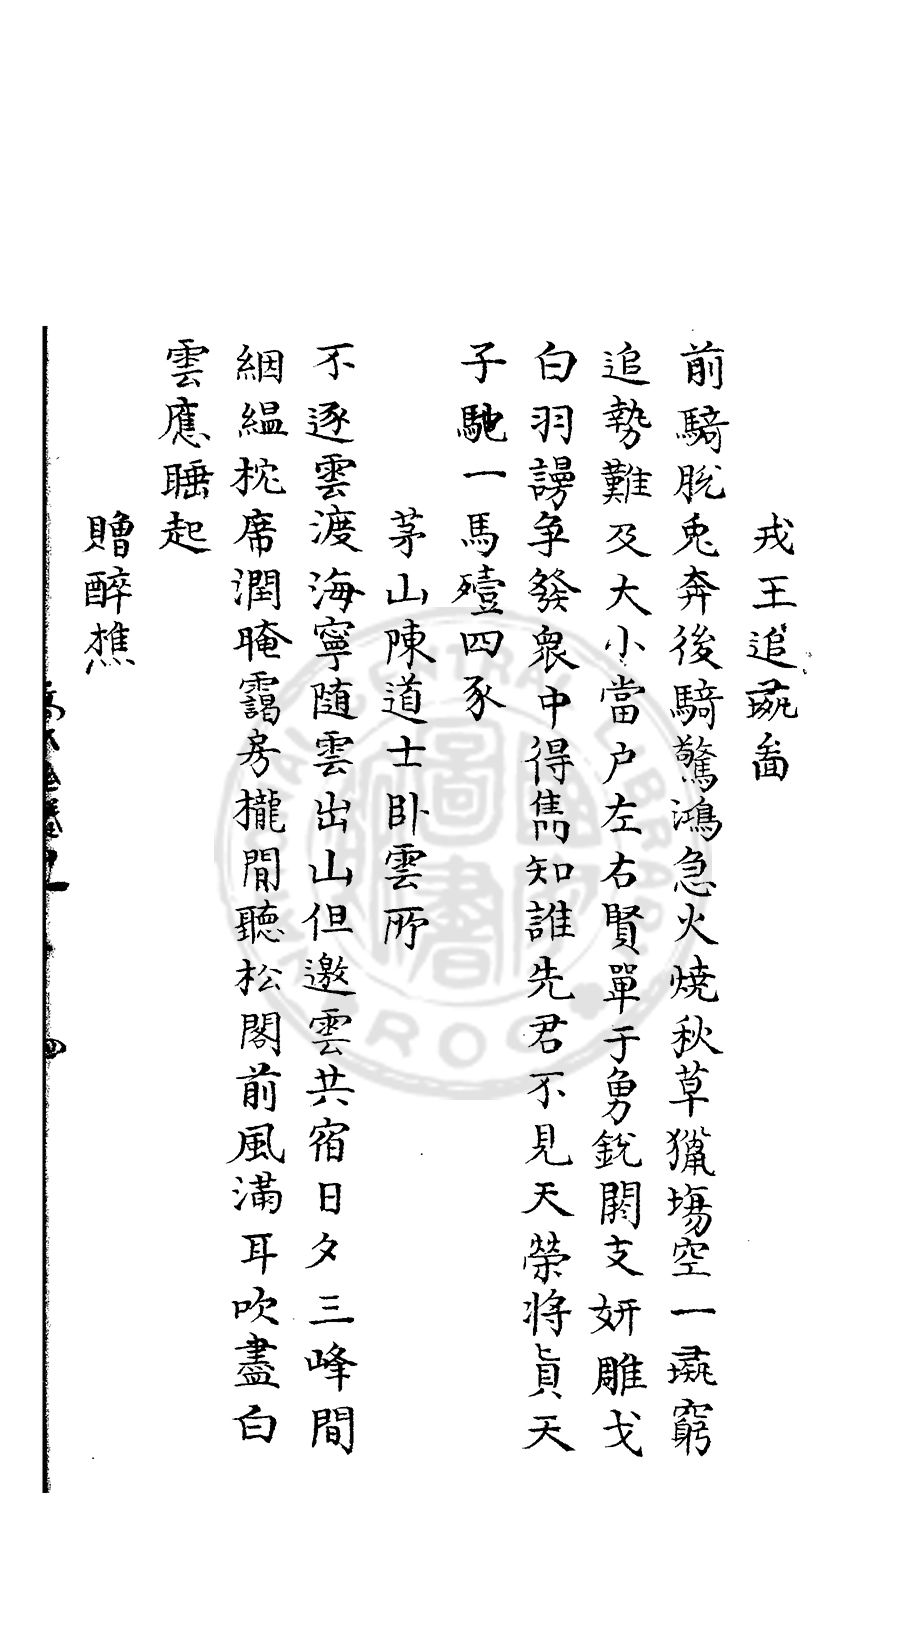 戎王追㺃啚
前騎脫兎奔後騎驚鴻急火燒秋草獵塲空一㺃窮
追勢難及大小當户左右賢單于勇銳閼支妍雕戈
白羽謾争發衆中得雋知誰先君不見天榮將真天
子馳一馬殪四豕
茅山陳道士卧雲所
不逐雲渡海寧随雲出山但邀雲共宿日夕三峰間
絪緼枕席潤晻靄房櫳閒聽松閣前風滿耳吹盡白
雲應睡起
贈醉樵
NATIONAL CENTRAL LIBRARY
ROC